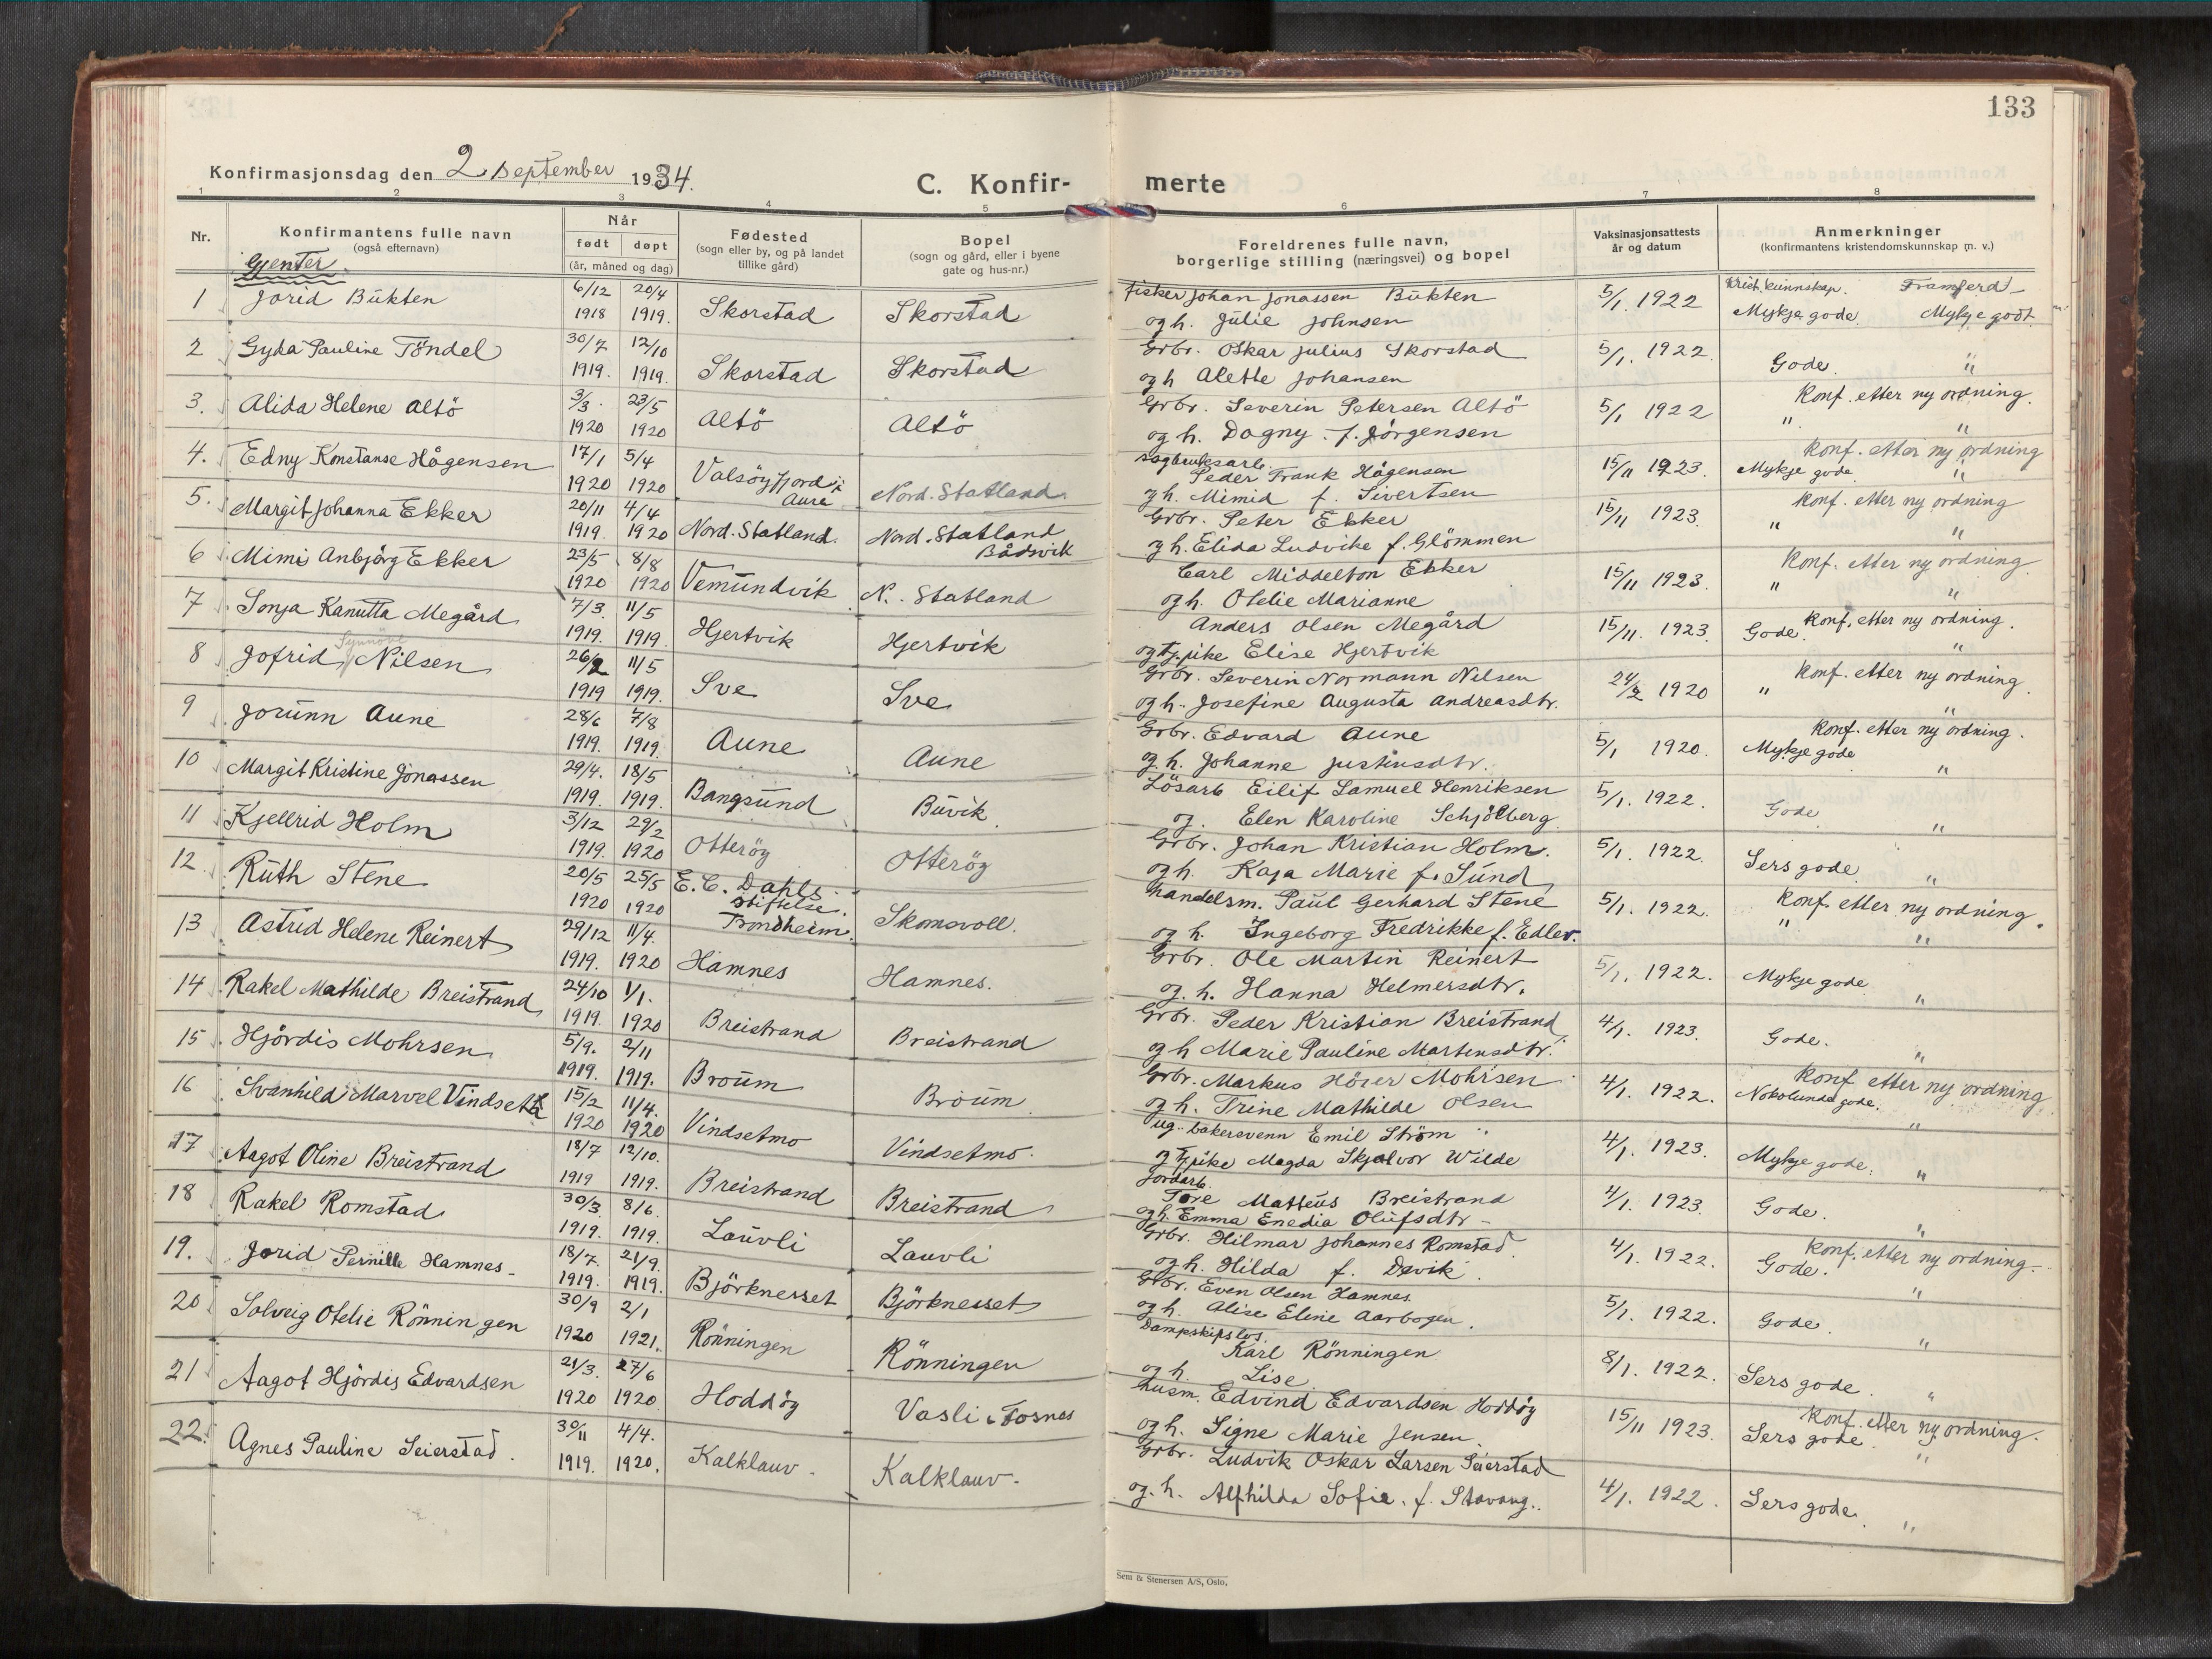 133
Konfirmasjonsdag den 2. september 1934.
C. Konfir- merte
1 2 3 4 5 6 7 8
Nr. Konfirmantens fulle navn (også efternavn) Når født døpt (år, måned og dag) Fødested (sogn eller by, og på landet tillike gård) Bopel (sogn og gård, eller i byene gate og hus-nr.) Foreldrenes fulle navn, borgerlige stilling (næringsvei) og bopel Vaksinasjonsattests år og datum Anmerkninger (konfirmantens kristendomskunnskap m. v.)
Gjenter.
1 Jorid Bukten 6/12 1918 20/4 1919. Skorstad Skorstad fisker Johan Jonassen Bukten og h. Julie Johnsen 5/1 1922 Krist. kunnskap. Mykje gode. Framferd Mykje godt.
2 Gyda Pauline Töndel 30/7 1919. 12/10 1919. Skorstad Skorstad Grbr. Oskar Julius Skorstad og h Alette Johansen 5/1. 1922. Gode. "
3. Alida Helene Altö 3/3. 1920 23/5 1920 Altö Altö Grbr. Severin Petersen Altö og h. Dagny f. Jörgensen 5/1 1922 " Konf. etter ny ordning. "
4. Edny Konstanse Hågensen 17/1 1920 5/4 1920 Valsöyfjord i Aure Nord. Statland sagbruksarb. Peder Frank Hågensen og h. Mimid f. Sivertsen 15/11 1923. Mykje gode Konf. etter ny ordning "
5. Margit Johanna Ekker 20/11 1919. 4/4 1920 Nord. Statland. Nord. Statland Bådsvik Grbr. Peter Ekker og h. Elida Ludvike f. Glömmen 15/11 1923. " Konf. etter ny ordning "
6 Mimi Anbjörg Ekker 23/5 1920 8/8 1920 Vemundvik N. Statland Carl Middelton Ekker og h. Otelie Marianne 15/11 1923. " Konf. etter ny ordning. "
7 Sonja Kanutta Megård 7/3. 1919. 11/5 1919 Hjertvik Hjertvik Anders Olsen Megård og tj.pike Elise Hjertvik 15/11. 1923. Gode. Konf. etter ny ordning. "
8 Jofrid Synnöve Nilsen 26/2 1919 11/5 1919. Sve Sve Grbr. Severin Normann Nilsen og h. Josefine Augusta Andreasdtr. 24/2 1920 " Konf. etter ny ordning. "
9 Jorunn Aune 28/6 1919. 7/8 1919. Aune Aune Grbr. Edvard Aune og h. Johanne Justinsdtr. 5/1 1920. Mykje gode Konf. etter ny ordning. "
10 Margit Kristine Jonassen 29/4. 1919. 18/5 1919. Bangsund Buvik. Lösarb Eilif Samuel Henriksen og Elen Karoline Schjölberg. 5/1. 1922. Gode "
11 Kjellrid Holm 3/12 1919. 29/2 1920 Otteröy Otteröy Grbr. Johan Kristian Holm. og h. Kaja Marie f. Sund 5/1. 1922. Sers gode. "
12. Ruth Stene 20/5 1920 25/5 1920 E. C. Dahls Stiftelse. Trondheim. Skomsvoll. handelsm. Paul Gerhard Stene og h. Ingeborg Fredrikke f. Edler. 5/1. 1922. " Konf. etter ny ordning. "
13 Astrid Helene Reinert 29/12 1919. 11/4. 1920 Hamnes Hamnes. Grbr. Ole Martin Reinert og. h. Hanna Helmersdtr. 5/1. 1922. Mykje gode "
14 Rakel Mathilde Breistrand 24/10 1919. 1/1. 1920 Breistrand Breistrand Grbr. Peder Kristian Breistrand og h Marie Pauline Martinsdtr. 4/1. 1923. Gode. "
15 Hjördis Mohrsen 5/9. 1919. 2/11 1919. Broum Broum Grbr. Markus Höier Mohrsen og h. Trine Mathilde Olsen 4/1. 1922. Nokolunde gode. Konf etter ny ordning "
16 Svanhild Marvel Vindseth 15/2 1920 11/4. 1920 Vindsetmo Vindsetmo. ug. bakersvenn Emil Ström og tj.pike Magda Skjalvor Wilde 4/1. 1923. Mykje gode. "
17 Aagot Oline Breistrand 18/7 1919 12/10. 1919. Breistrand Breistrand Jordarb. Tore Matteus Breistrand og h. Emma Enedia Olufsdtr 4/1. 1923. Gode. "
18 Rakel Romstad 30/3. 1919. 8/6. 1919. Lauvli Lauvli Grbr. Hilmar Johannes Romstad. og h. Hilda f. Devik. 4/1. 1922. Gode. Konf. etter ny ordning. "
19. Jorid Pernille Hamnes 18/7. 1919. 21/9. 1919. Björknesset Björknesset Grbr. Even Olsen Hamnes. og h. Alise Eline Aarbogen. 5/1. 1922. Gode. "
20 Solveig Otelie Rönningen 30/9 1920 2/1 1921. Rönningen Rönningen Dampskipslos. Karl Rönningen og h Lise 8/1. 1922. Sers gode. "
21 Aagot Hjördis Edvardsen 21/3. 1920 27/6 1920 Hoddöy Vasli i Fosnes husm. Edvind Edvardsen Hoddöy og h. Signe Marie Jensen 15/11 1923. Sers gode Konf. etter ny ordning. "
22. Agnes Pauline Seierstad. 30/11 1919. 4/4. 1920. Kalklauv. Kalklauv. Grbr. Ludvik Oskar Larsen Seierstad og. h. Alfhilda Sofie. f. Stavang.. 4/1. 1922. Sers gode. "
Sem & Stenersen A/S, Oslo.